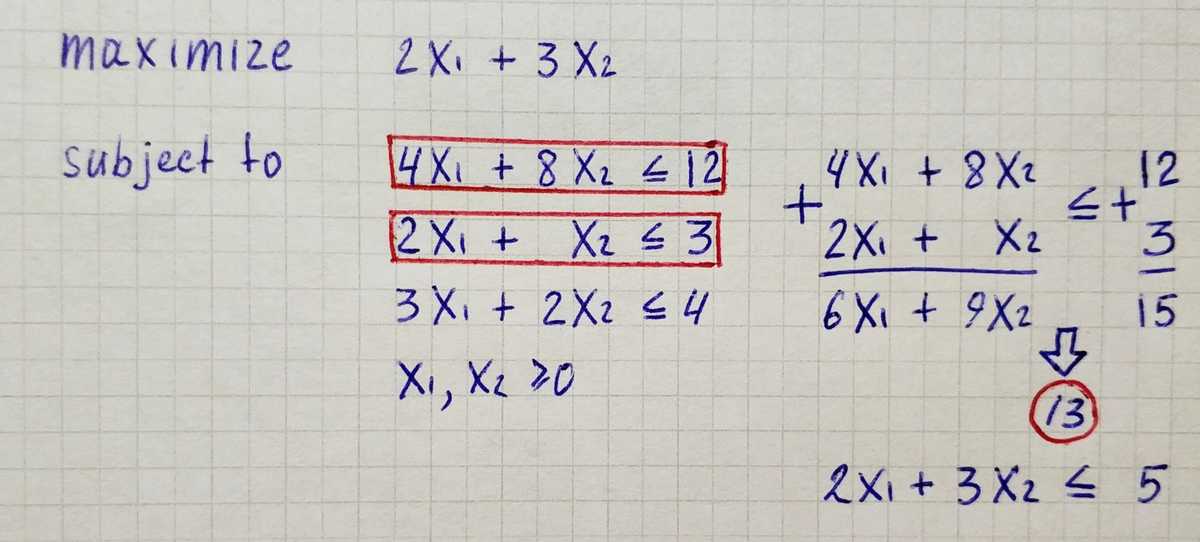 maximize 2x₁ + 3x₂
subject to 4x₁ + 8x₂ ≤ 12
2x₁ + x₂ ≤ 3
3x₁ + 2x₂ ≤ 4
x₁, x₂ ≥ 0
+ 4x₁ + 8x₂ ≤ + 12
2x₁ + x₂ 3
6x₁ + 9x₂ 15
⇩
13
2x₁ + 3x₂ ≤ 5